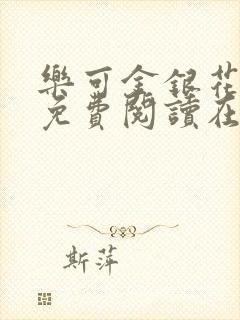 樂可金銀花
免費閱讀在
斯萍